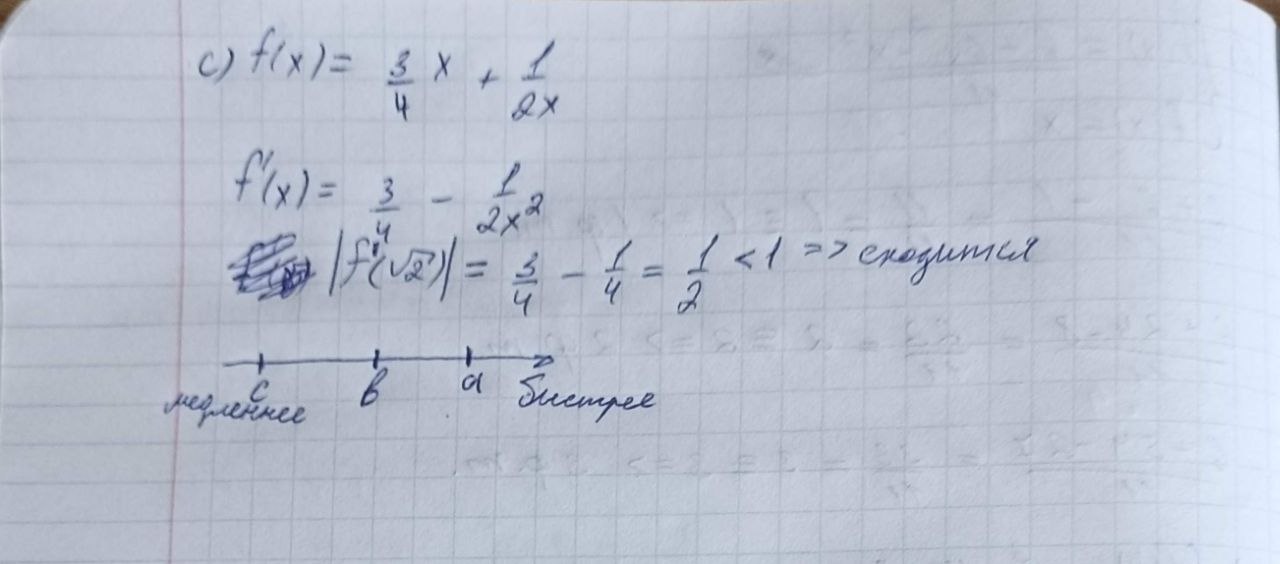 c) f(x) = 3/4 x + 1/2x
f'(x) = 3/4 - 1/2x²
|f'(√2)| = 3/4 - 1/4 = 1/2 < 1 => сходится
c в a
медленнее быстрее